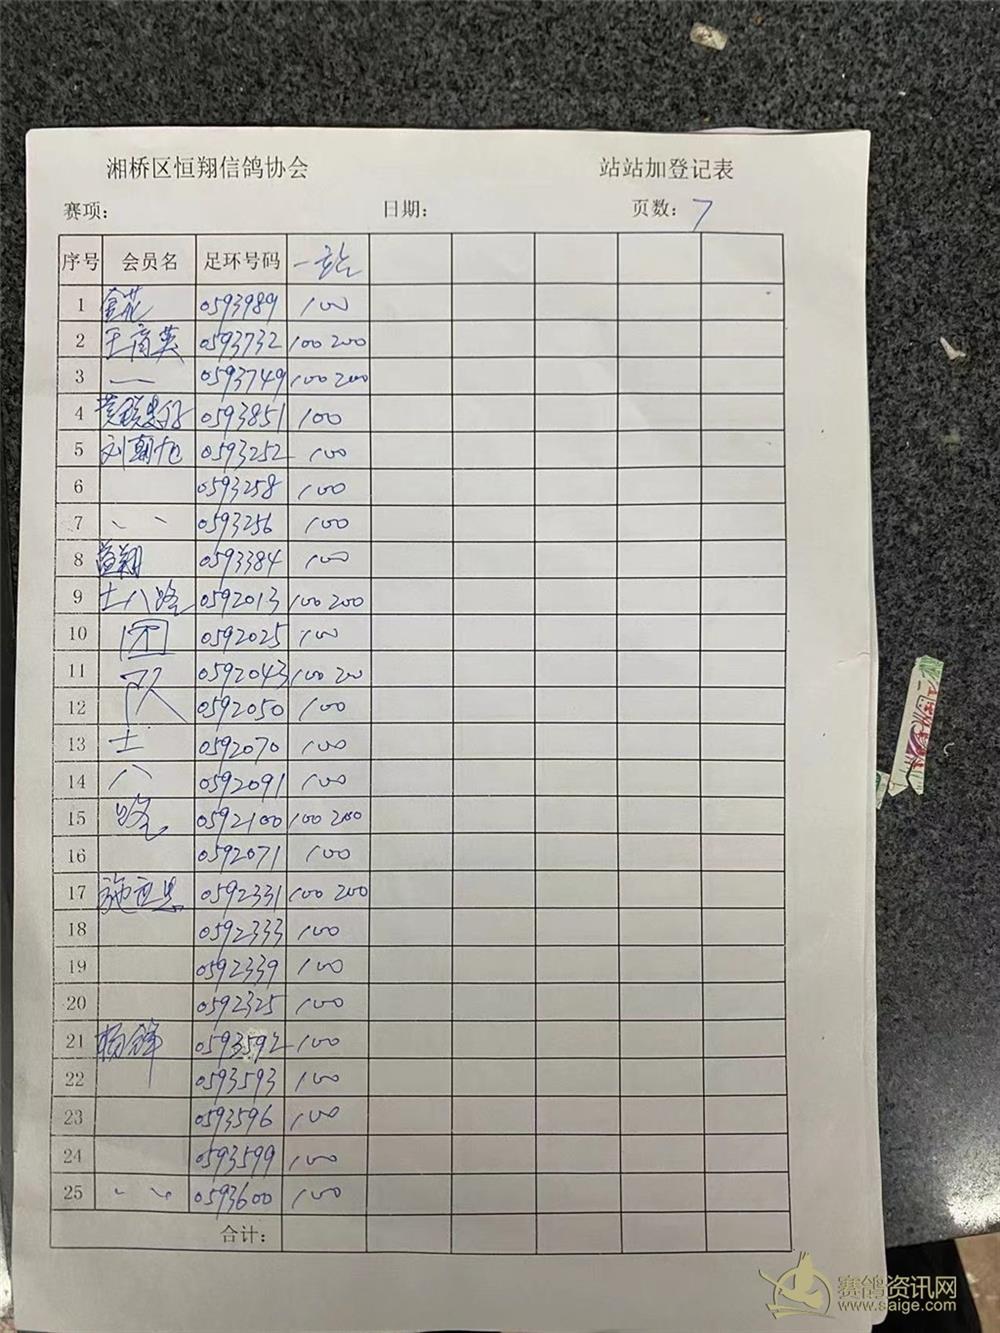 湘桥区恒翔信鸽协会 站站加登记表
赛项: 日期: 页数: 7
序号 会员名 足环号码 一站
1 金花 0593989 100
2 王商英 0593732 100 200
3 — 0593749 100 200
4 0593851 100
5 刘朝旭 0593252 100
6 0593258 100
7 、、 0593256 100
8 0593384 100
9 土八路 0592013 100 200
10 团 0592025 100
11 队 0592043 100 200
12 0592050 100
13 土 0592070 100
14 八 0592091 100
15 路 0592100 100 200
16 0592071 100
17 施 0592331 100 200
18 0592333 100
19 0592339 100
20 0592325 100
21 杨锋 0593592 100
22 0593593 100
23 0593596 100
24 0593599 100
25 、、 0593600 100
合计:
赛鸽资讯网
www.saige.com